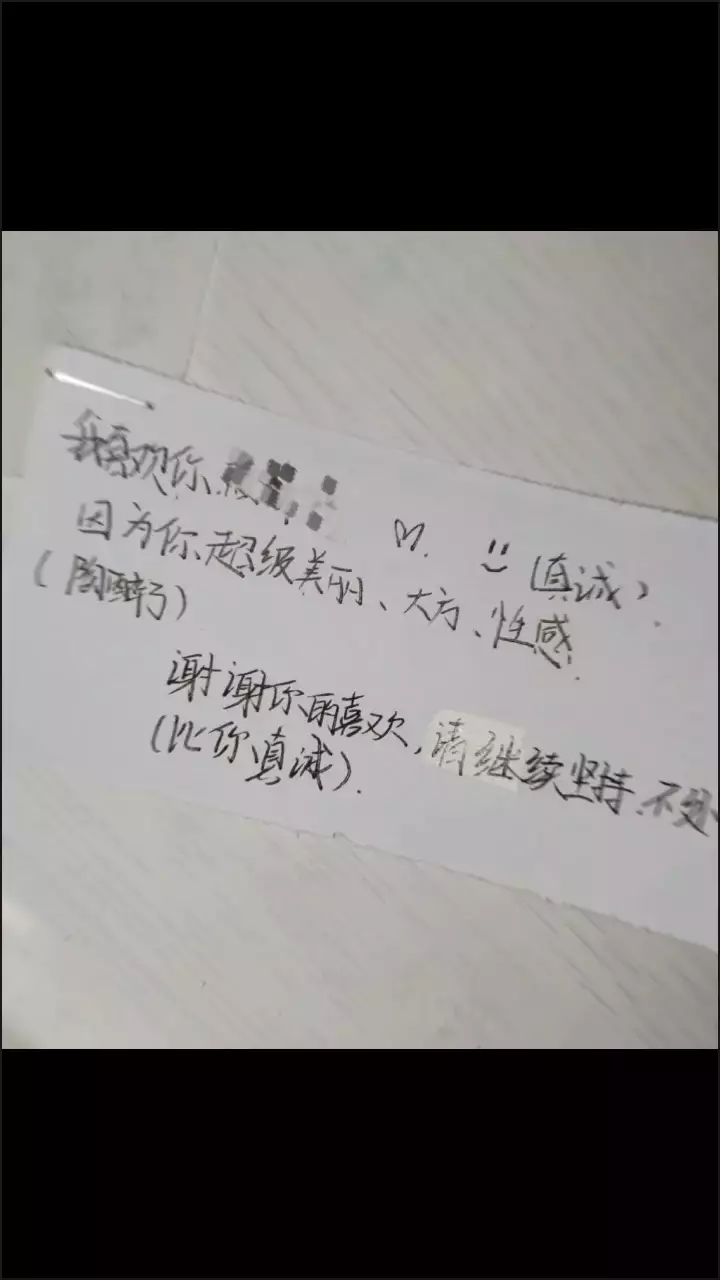 我喜欢你 ♡. (真诚).
因为你超级美丽、大方、性感.
(陶醉了)
谢谢你的喜欢,请继续坚持.不
(比你真诚).